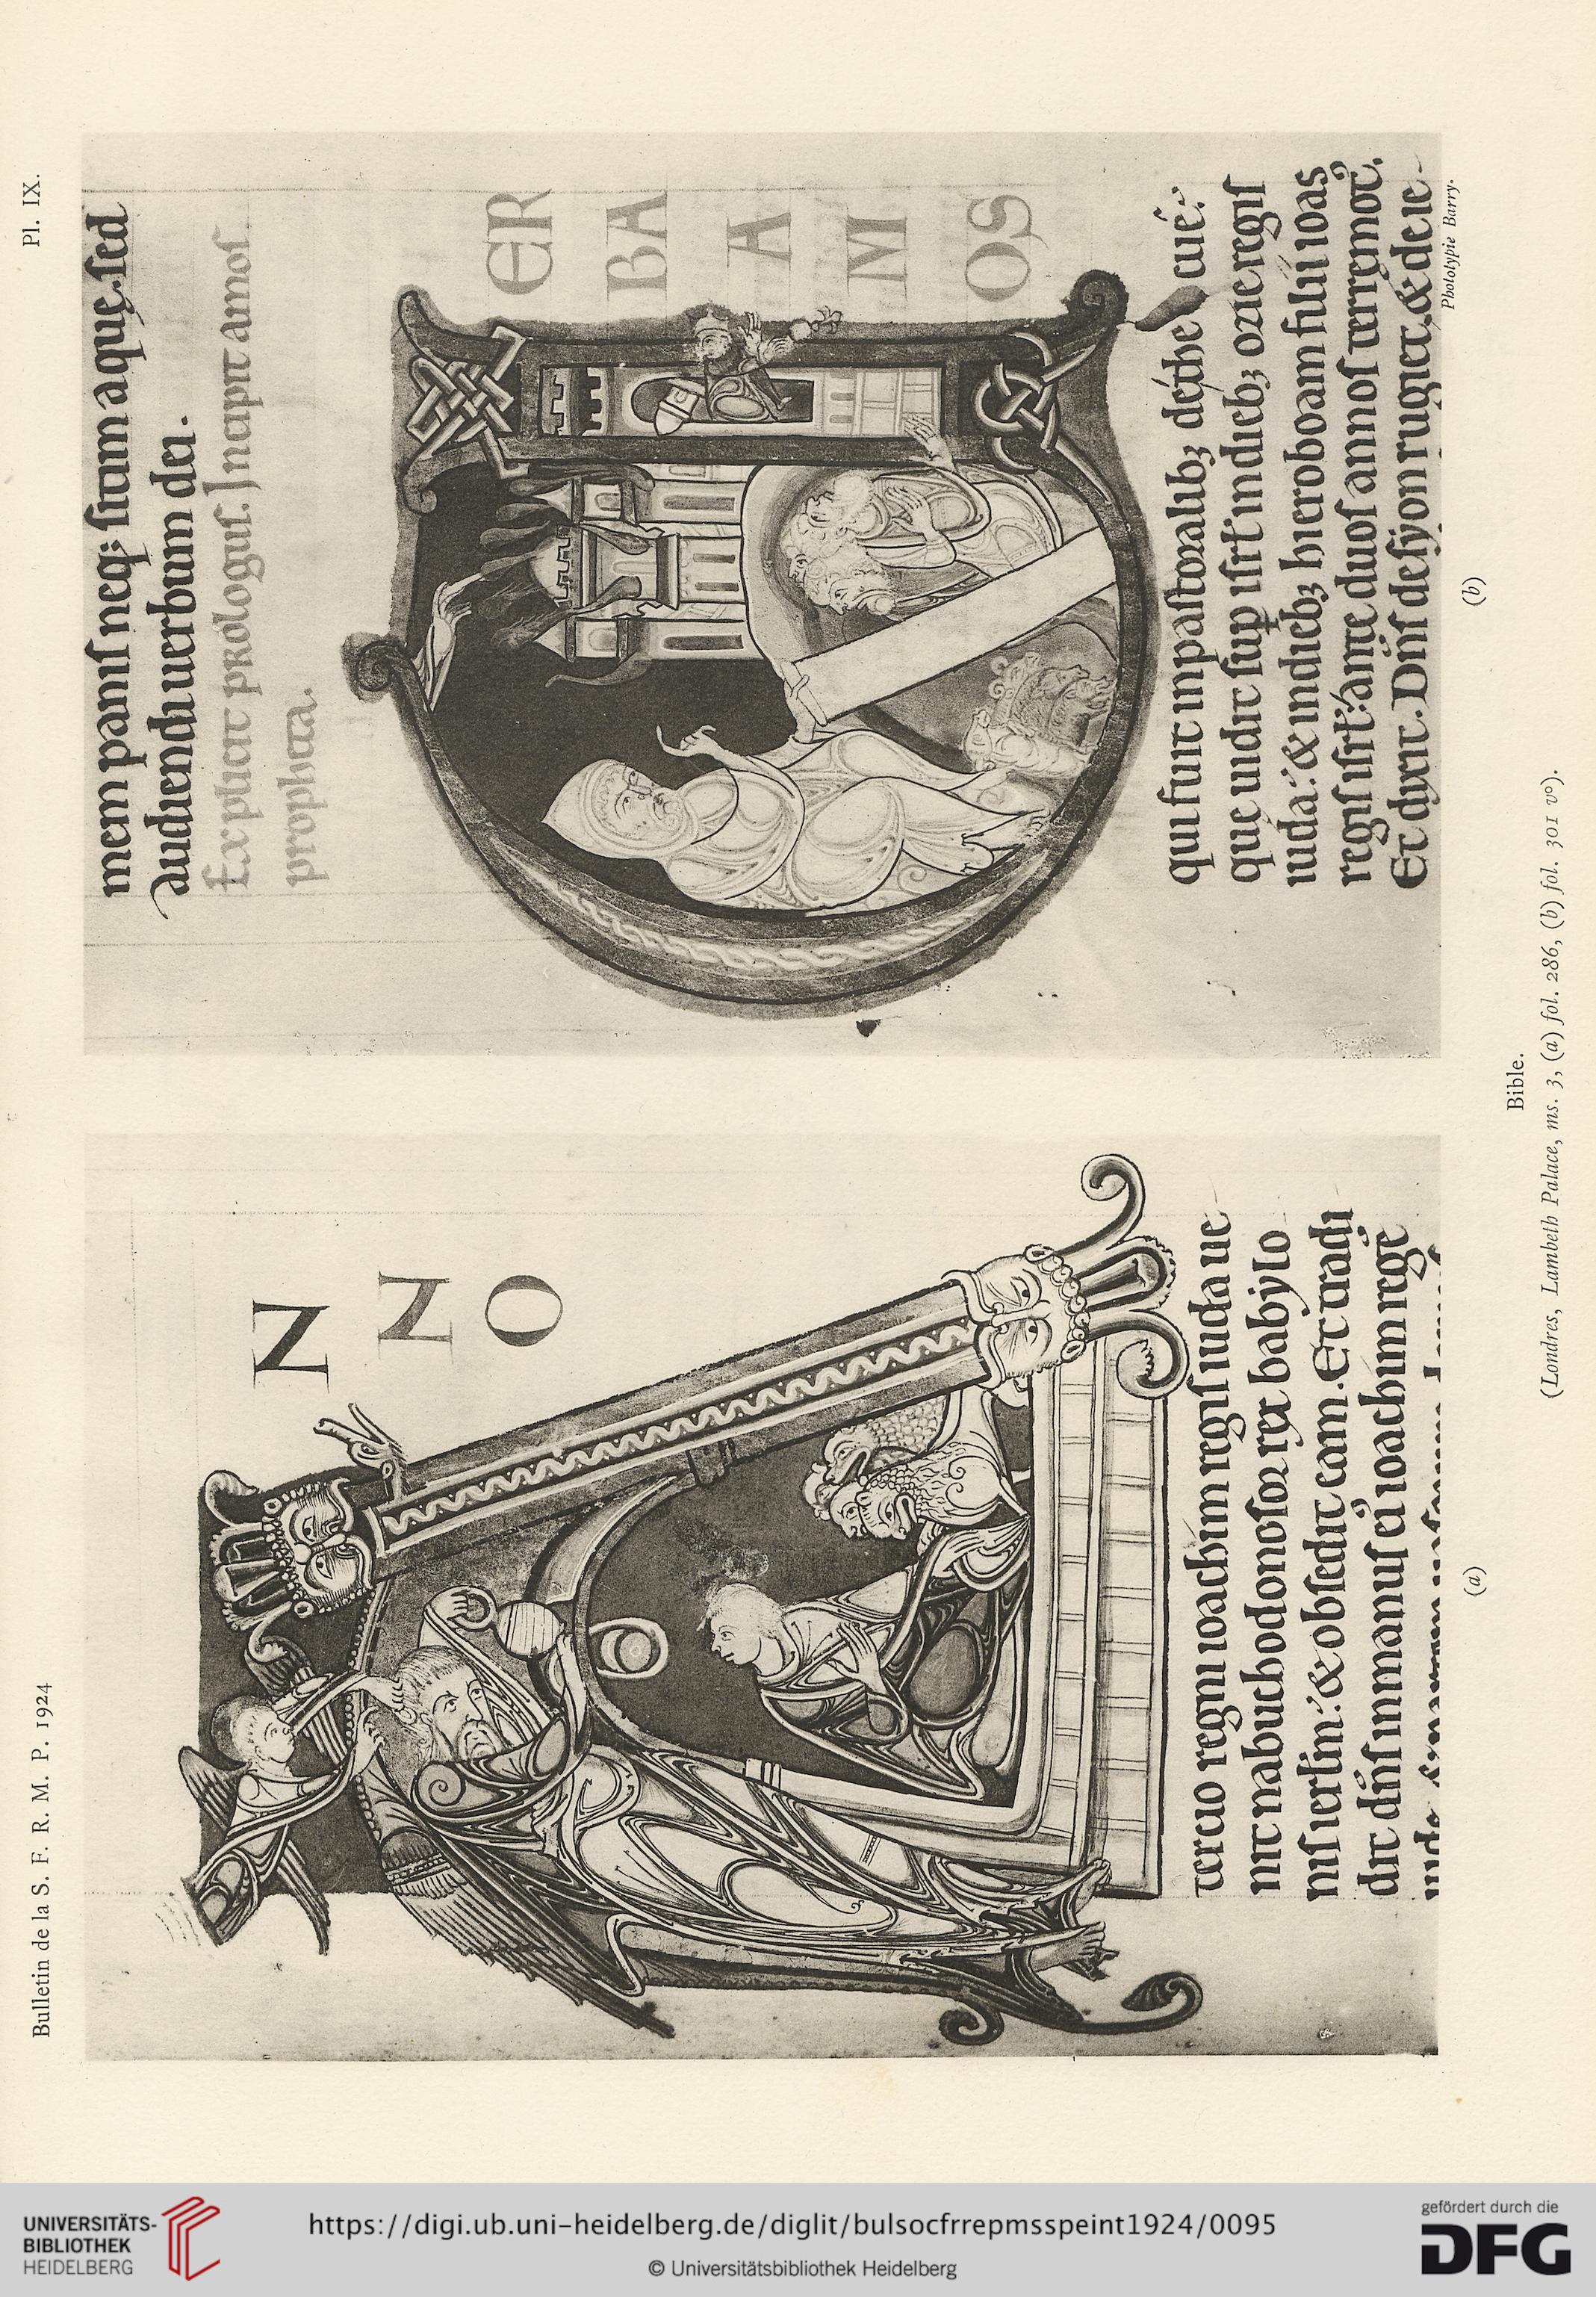 Bulletin de la S. F. R. M. P. 1924
Pl. IX.
N
N
O
tercio regni ioachim regis iuda ue
nit nabuchodonosor rex babylo
nis ierlm: & obsedit eam. Et tradi
dit dns in manus ei ioachim rege
iude
(a)
mem panis neq; sitim aque. sed
audiendi uerbum dei.
Explicit prologus. Incipit amos
propheta.
ER
BA
A
M
OS
qui fuit in pastoralib; dethe cue:
que uidit sup isrl in dieb; ozie regis
iuda: & in dieb; hieroboam filii ioas
regis isrl: ante duos annos terremot.
Et dixit. Dns de syon rugiet, & de ie-
Phototypie Barry.
(b)
Bible.
(Londres, Lambeth Palace, ms. 3, (a) fol. 286, (b) fol. 301 vº).
UNIVERSITÄTS-
BIBLIOTHEK
HEIDELBERG
https://digi.ub.uni-heidelberg.de/diglit/bulsocfrrepmsspeint1924/0095
© Universitätsbibliothek Heidelberg
gefördert durch die
DFG